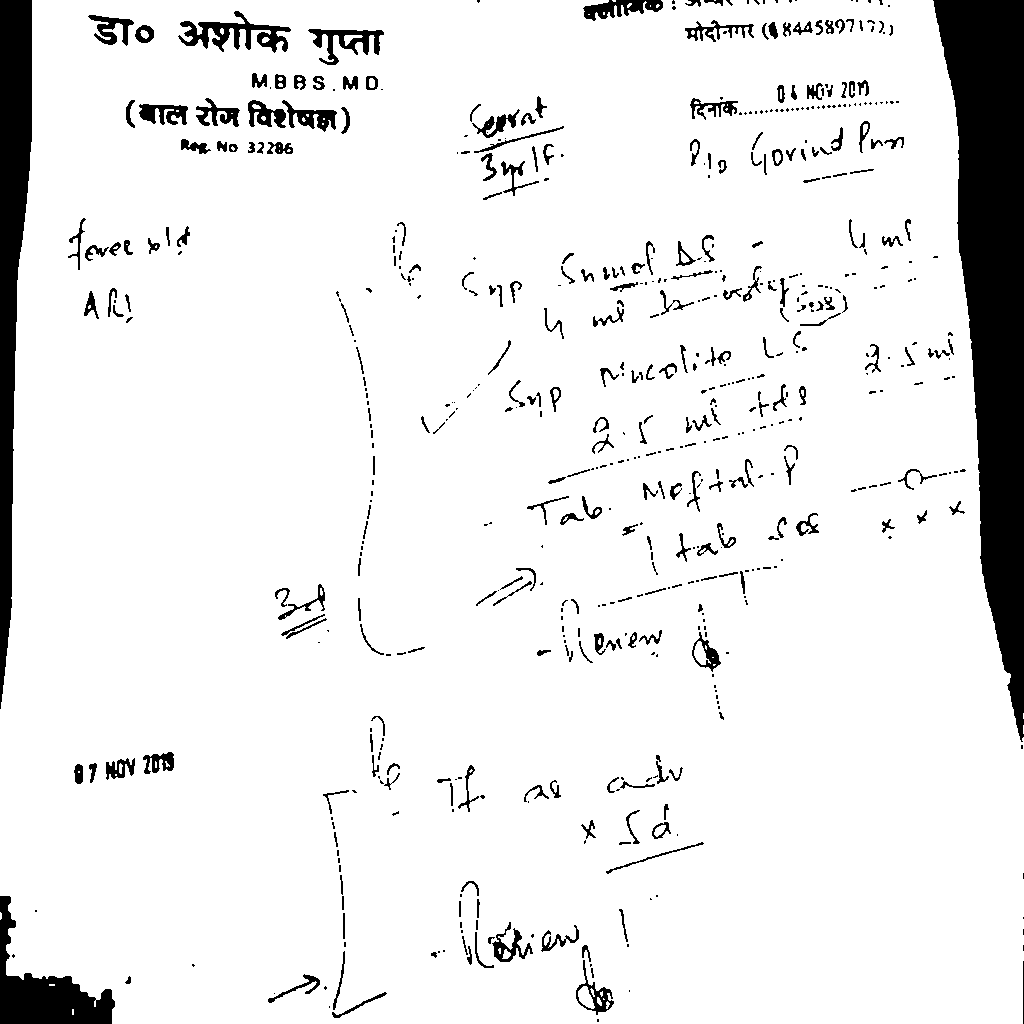 डा० अशोक गुप्ता
M.B.B.S., M.D.
(बाल रोग विशेषज्ञ)
Reg. No 32286
क्लीनिक :
मोदीनगर (8445897172)
दिनांक 04 NOV 2019
Seerat
3 yr/F.
Govind Puri
fever x 1d
ARI
Rx
Syp Sumol DS - 4 ml
4 ml sos
Syp LS 2.5 ml
2.5 ml tds
- Tab. Meftal-P
1 tab sos x x x
3rd
- Review
07 NOV 2019
Rx
as adv
x 5d
- Review